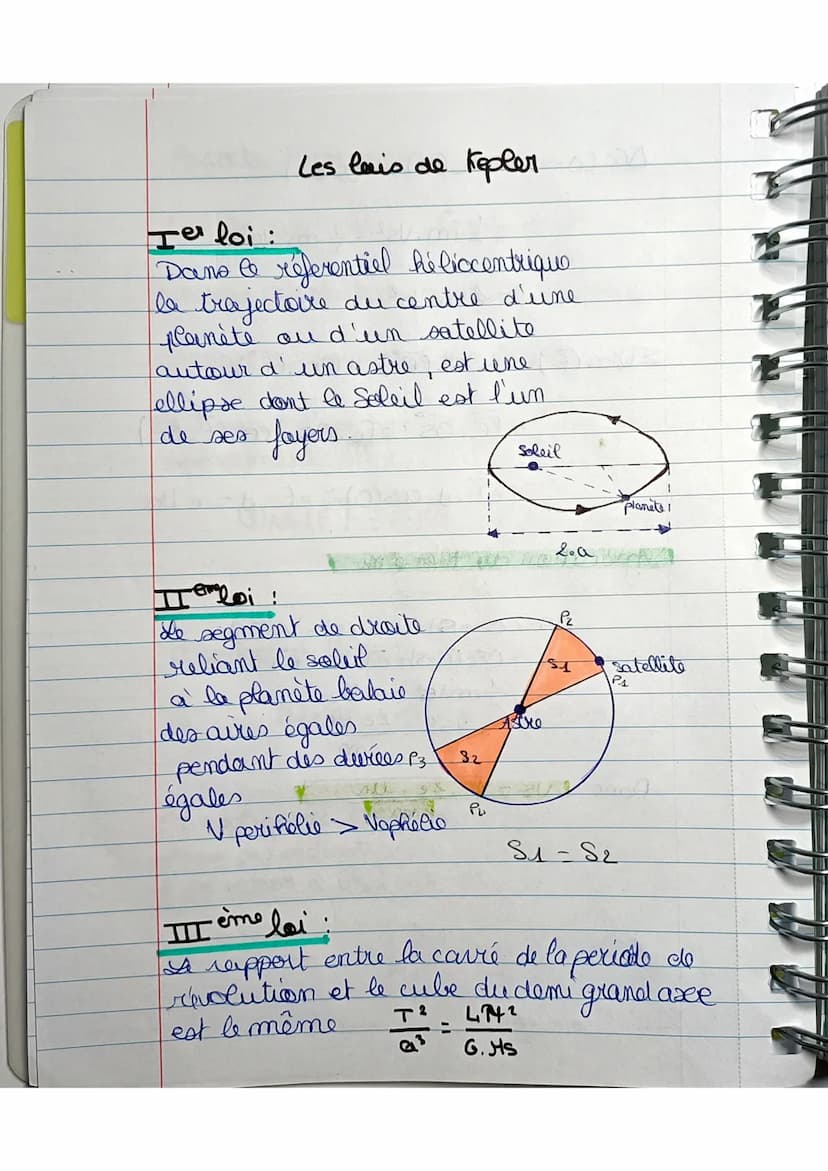 Les lois de Kepler
Ier loi :
Dans le réferentiel héliocentrique
la trajectoire du centre d'une
planète ou d'un satellite
autour d'un astre, est une
ellipse dont le Soleil est l'un
de ses foyers.
Soleil
planète
2.a
IIème loi :
Le segment de droite
reliant le soleil
à la planète balaie
des aires égales
pendant des durées
égales
V perihélie > Vaphélie
P2
S1
satellite
P1
Astre
P3
S2
P4
S1 = S2
IIIème loi :
Le rapport entre la carré de la periode de
révolution et le cube du demi grand axe
est le même T²/a³ = 4π²/G.Ms